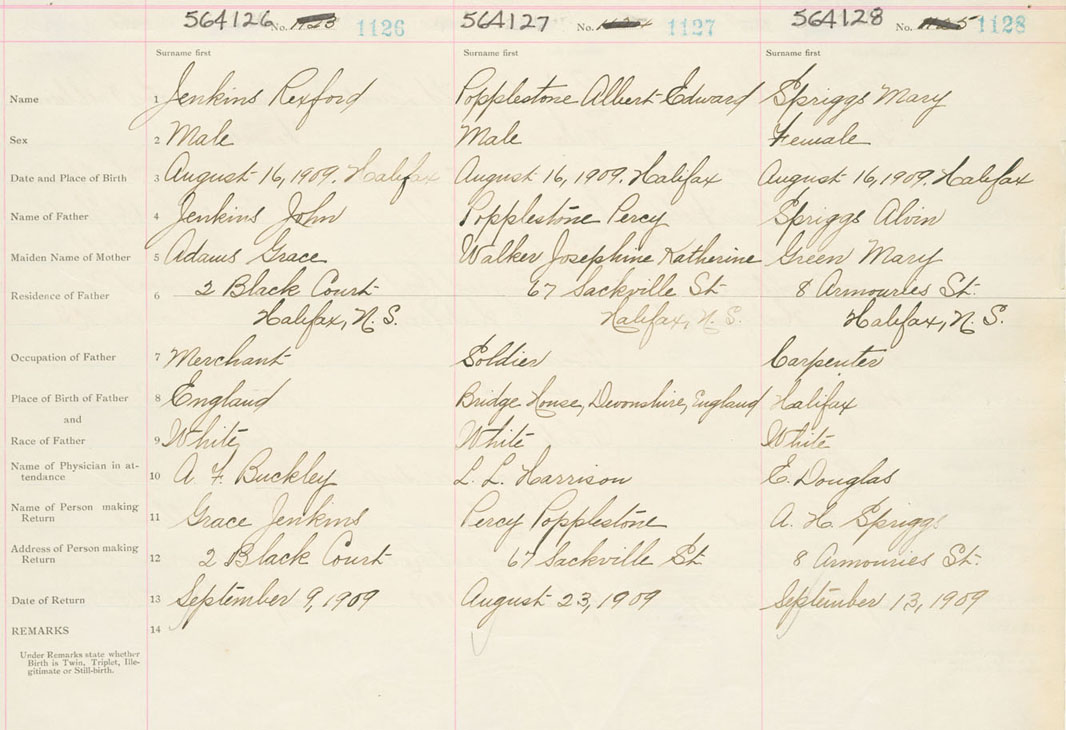 564126 No. 1126 564127 No. 1127 564128 No. 1128
Surname first Surname first Surname first
Name 1 Jenkins Rexford Popplestone Albert Edward Spriggs Mary
Sex 2 Male Male Female
Date and Place of Birth 3 August 16, 1909. Halifax August 16, 1909. Halifax August 16, 1909. Halifax
Name of Father 4 Jenkins John Popplestone Percy Spriggs Alvin
Maiden Name of Mother 5 Adams Grace Walker Josephine Katherine Green Mary
Residence of Father 6 2 Black Court 67 Sackville St 8 Armouries St.
Halifax, N. S. Halifax, N. S. Halifax, N. S.
Occupation of Father 7 Merchant Soldier Carpenter
Place of Birth of Father 8 England Bridge House, Devonshire, England Halifax
and
Race of Father 9 White White White
Name of Physician in at-
tendance 10 A. F. Buckley L. L. Harrison E. Douglas
Name of Person making
Return 11 Grace Jenkins Percy Popplestone A. H. Spriggs
Address of Person making
Return 12 2 Black Court 67 Sackville St 8 Armouries St.
Date of Return 13 September 9, 1909 August 23, 1909 September 13, 1909
REMARKS 14
Under Remarks state whether
Birth is Twin, Triplet, Ille-
gitimate or Still-birth.